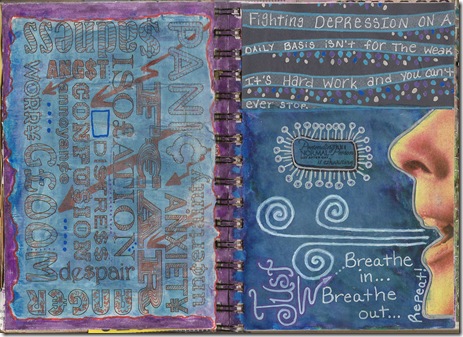 sadness
PANIC
ANGST
ISOLATION
WORRY
annoyance
CONFUSION
DISTRESS
GLOOM
FEAR
ANXIETY
despair
ANGER
Fighting Depression on a
daily basis isn't for the weak
It's Hard work and you can't
ever stop.
Just
Breathe
in...
Breathe
out...
Repeat!